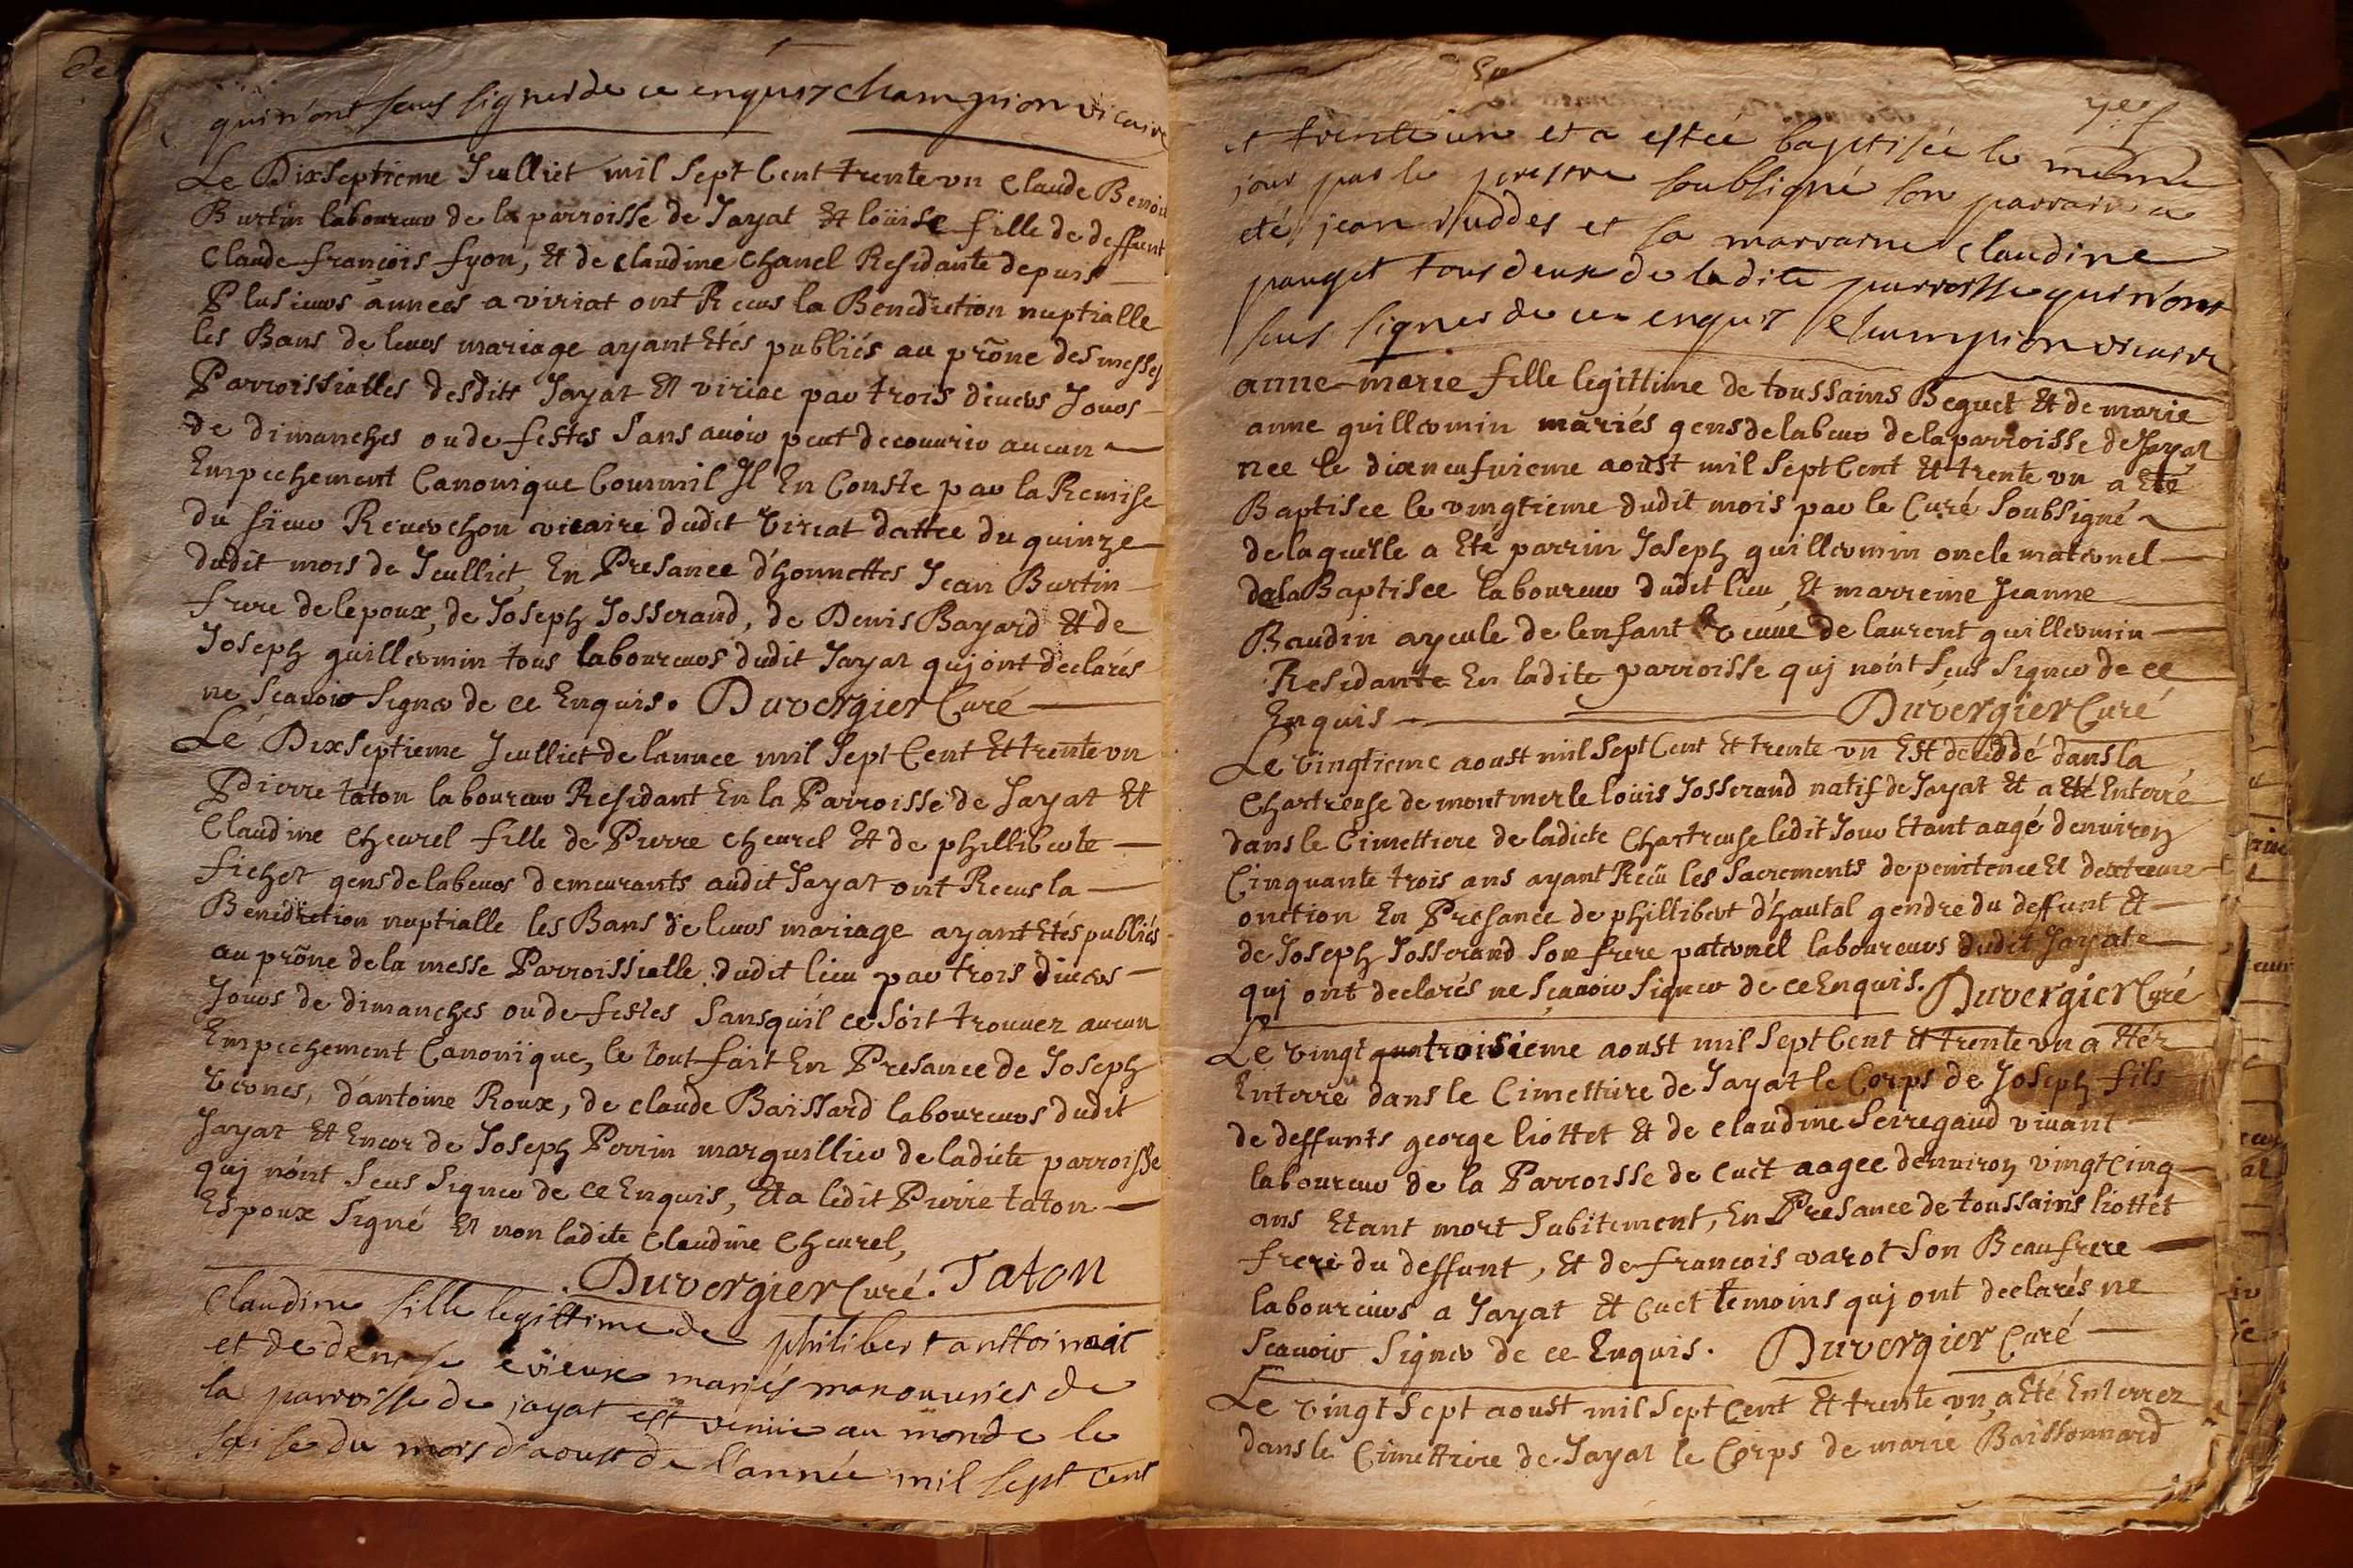 qui n'ont sceus signer de ce enquis champion vicaire
Le Dixseptieme Jeulliet mil sept Cent trente vn Claude Benoit
Burtin laboureur de la parroisse de Jayat Et loüise fille de deffunt
Claude françois fyon, Et de claudine Chanel Residante depuis
Plusieurs années a viriat ont Receus la Benediction nuptialle
les Bans de leurs mariage ayant Etés publiés au prône des messes
Parroissialles desdits Jayat Et viriat par trois divers Jours
de dimanches ou de festes Sans avoir peut decouvrir aucun
Empechement Canonique Comm'il En Conste par la Remise
du sieur Reverchon vicaire dudit viriat dattée du quinze
dudit mois de Jeulliet, En Presance d'honnettes Jean Burtin
frere de lepoux, de Joseph Josserand, de Denis Bayard Et de
Joseph guillermin tous laboureurs dudit Jayat quj ont declarés
ne scavoir signer de ce Enquis. Duvergier Curé
Le Dixseptieme Jeulliet de l'annee mil sept Cent Et trente vn
Pierre taton laboureur Residant En la Parroisse de Jayat Et
Claudine Cheurel fille de Pierre Cheurel Et de philliberte
fichet gens de labeurs demeurants audit Jayat ont Receus la
Benediction nuptialle les Bans de leurs mariage ayant Etés publiés
au prône de la messe Parroissialle dudit lieu par trois divers
Jours de dimanches ou de festes Sans qu'il ce soit trouver aucun
Empechement Canonique, le tout fait En Presance de Joseph
vernes, d'antoine Roux, de claude Baissard laboureurs dudit
Jayat Et Encor de Joseph Perrin marguillier de ladicte parroisse
quj n'ont Sceus Signer de ce Enquis, Et a ledit Pierre taton
Espoux Signé Et non ladite Claudine Cheurel,
Duvergier Curé. Taton
Claudine fille legittime de philibert
et de denise evieux mariés manouvries de
la parroisse de jayat est venüe au monde le
saise du mors d'aoust de l'année mil sept cent
et trente un et a estée baptisée le meme
jour par le prestre soubsigné son parrain a
eté jean nuddes et sa marraine claudine
pauget tous deux de ladite parroisse qui n'ont
sceus signer de ce enquis Champion vicaire
anne-marie fille legittime de toussains Beguet Et de marie
anne guillermin mariés gens de labeur de la parroisse de Jayat
nee le dixneufvieme aoust mil sept Cent Et trente vn a Eté
Baptisee le vingtieme dudit mois par le Curé Soubsigné
de laquelle a Eté parrin Joseph guillermin oncle maternel
de la Baptisee laboureur dudit lieu Et marreine Jeanne
Baudin ayeule de lenfant veuve de laurent guillermin
Residante En ladite parroisse quj n'ont Sceus Signer de ce
Enquis Duvergier Curé
Le vingtieme aoust mil sept Cent Et trente vn Est deceddé dans la
Chartreuse de montmerle loüis Josserand natif de Jayat Et a Eté Enterré
dans le Cimettiere de ladicte Chartreuse ledit Jour Etant aagé denviron
Cinquante trois ans ayant Reçû les Sacrements de penitence Et dextreme
onction En Presance de phillibert d'hautal gendre du deffunt Et
de Joseph Josserand Son frere paternel laboureurs dudit Jayat
quj ont declarés ne Sçavoir Signer de ce Enquis. Duvergier Curé
Le vingt troisieme aoust mil sept Cent Et trente vn a Etér
Enterré dans le Cimettiere de Jayat le Corps de Joseph fils
de deffunts george liottet Et de claudine Seiregaud vivant
laboureur de la Parroisse de Cuet aagee denviron vingt Cinq
ans Etant mort Subitement, En Presance de toussains liottet
frere du deffunt, Et de francois varot Son Beaufrere
laboureurs a Jayat Et Cuet temoins quj ont declarés ne
Scavoir Signer de ce Enquis. Duvergier Curé
Le vingt Sept aoust mil Sept Cent Et trente vn, a Eté Enterrer
dans le Cimettiere de Jayat le Corps de marie Baissonnard